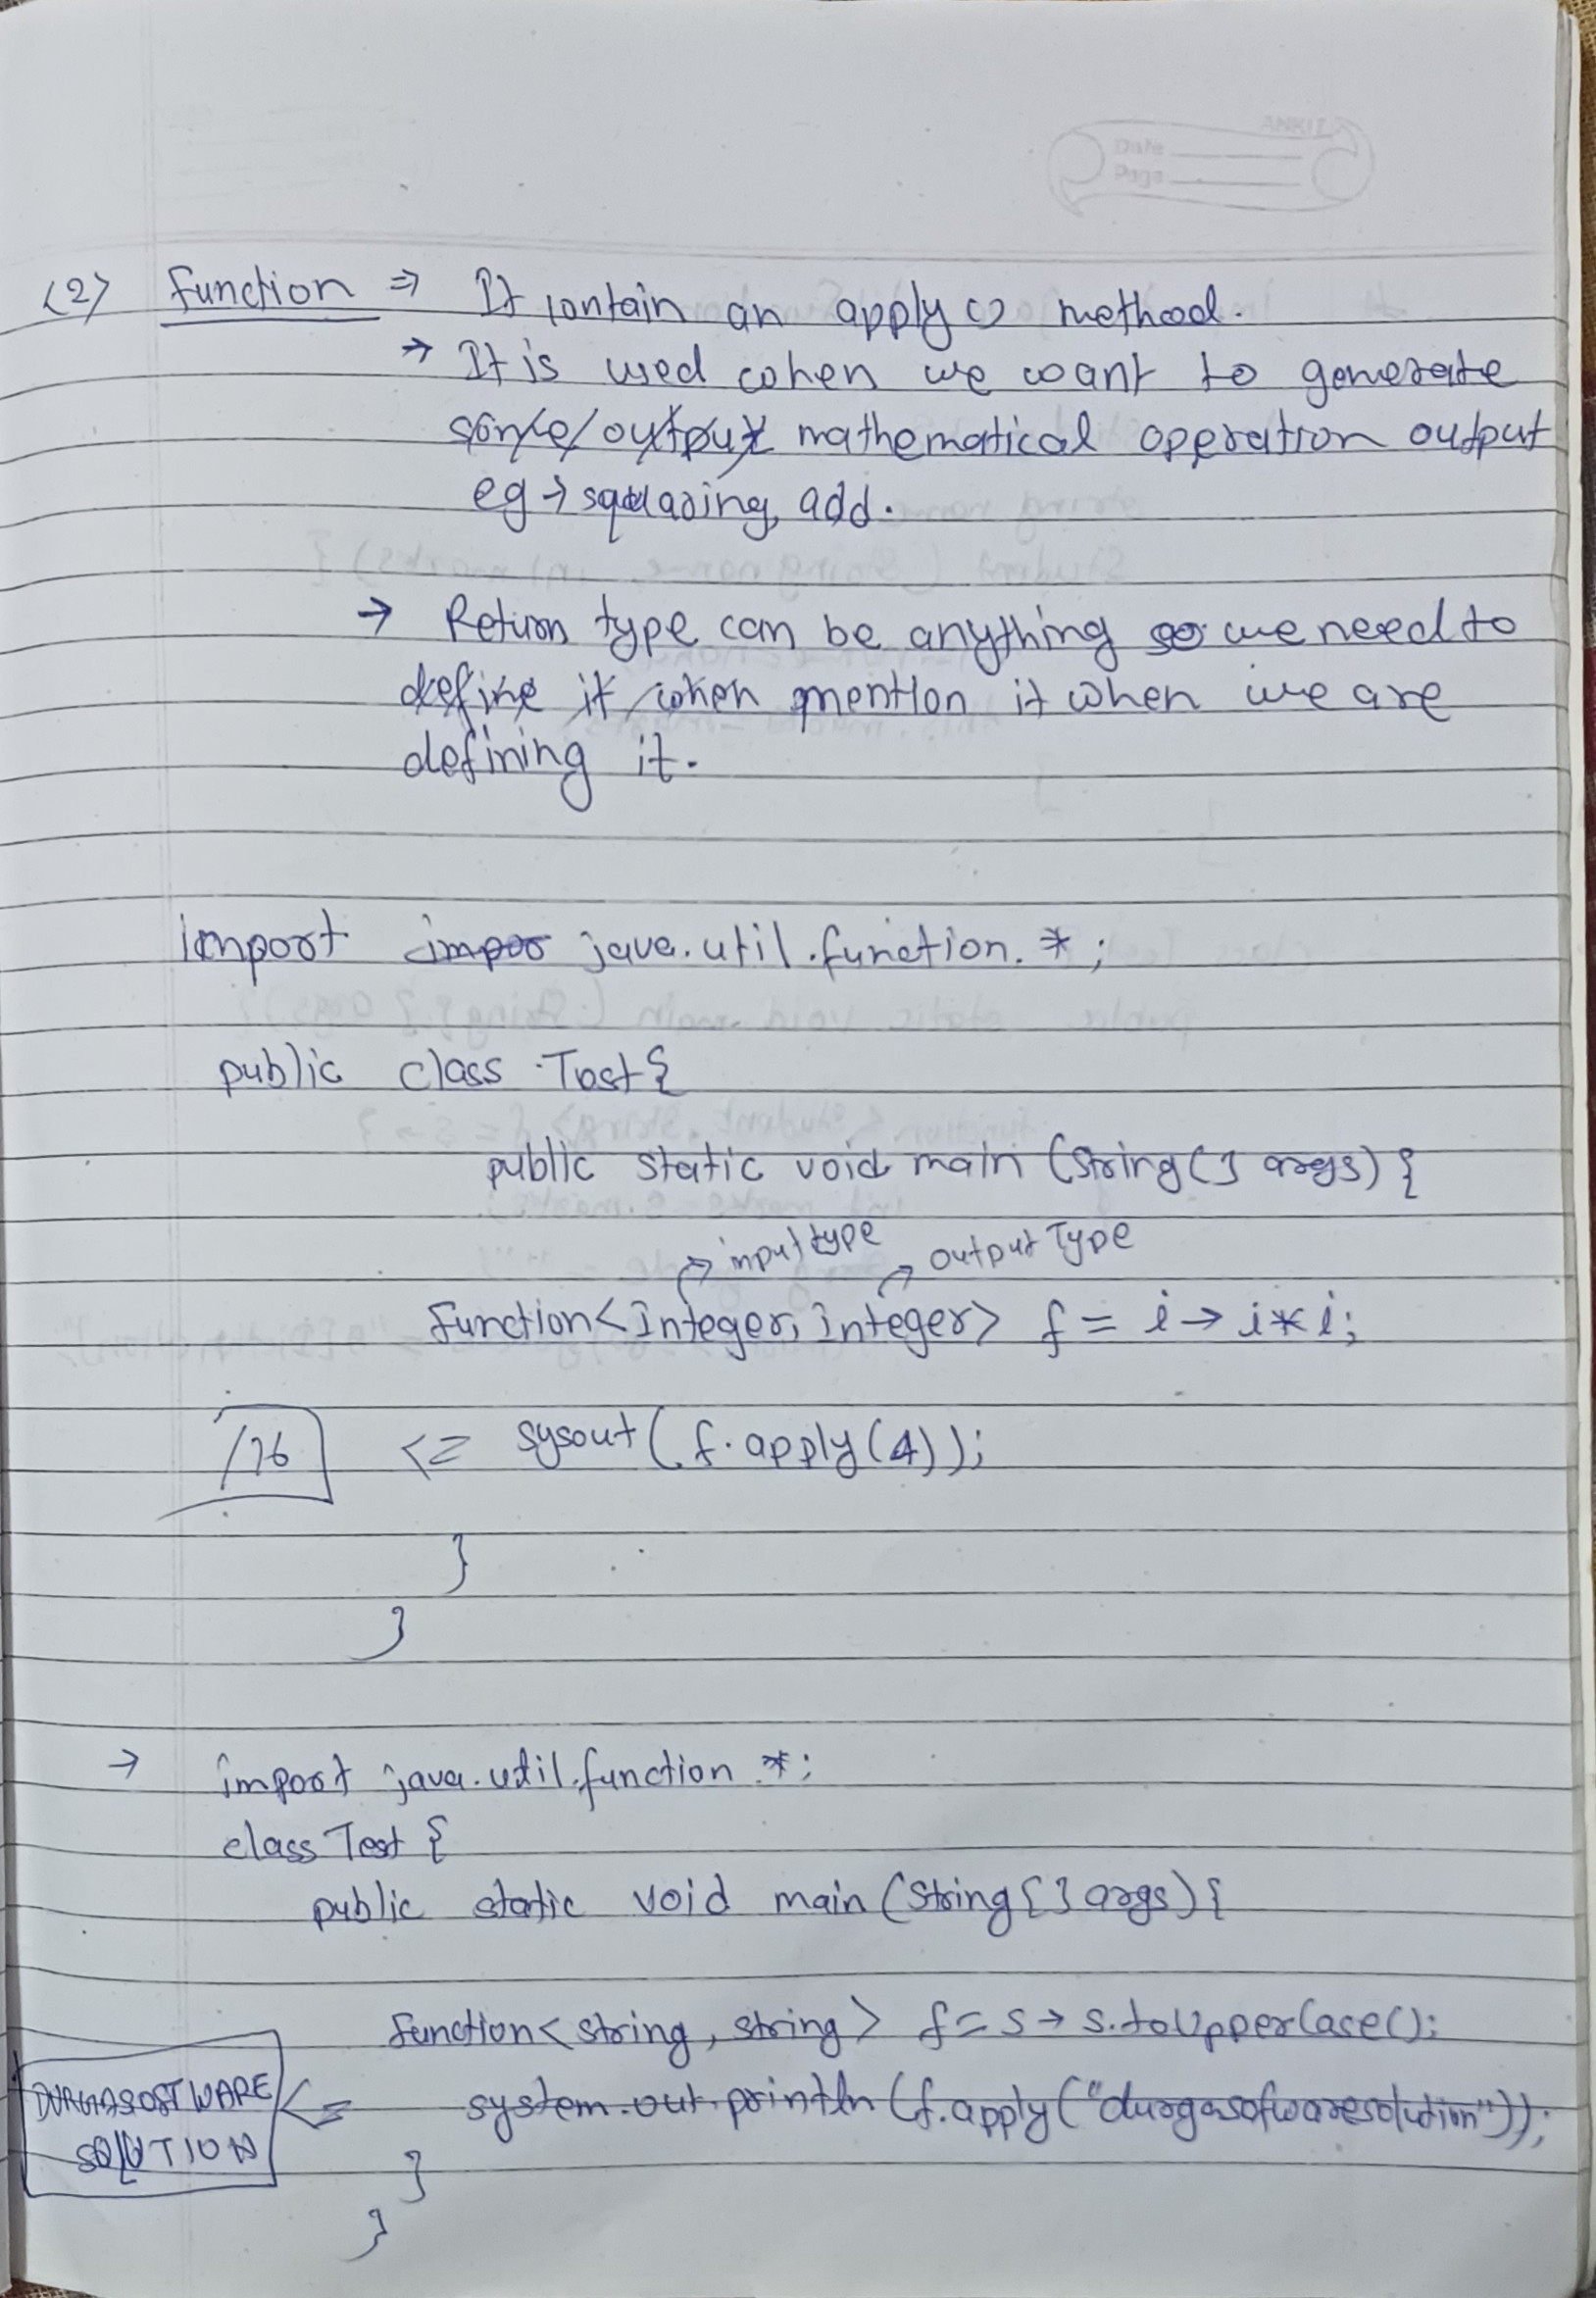 (2) Function ⇒ It contain an apply() method.
→ It is used when we want to generate
some/output mathematical operation output
eg → squaring, add.
→ Return type can be anything so we need to
define it when mention it when we are
defining it.
import impor java.util.function.*;
public class Test{
public static void main (String[] args) {
→ input type → output Type
Function<Integer, Integer> f = i → i*i;
16 <= sysout( f.apply(4));
}
}
→ import java.util.function.*;
class Test {
public static void main (String[] args) {
Function<String, String> f = s → s.toUpperCase();
DURGASOFTWARE <= system.out.println (f.apply("durgasofwaresolution"));
SOLUTION
}
}